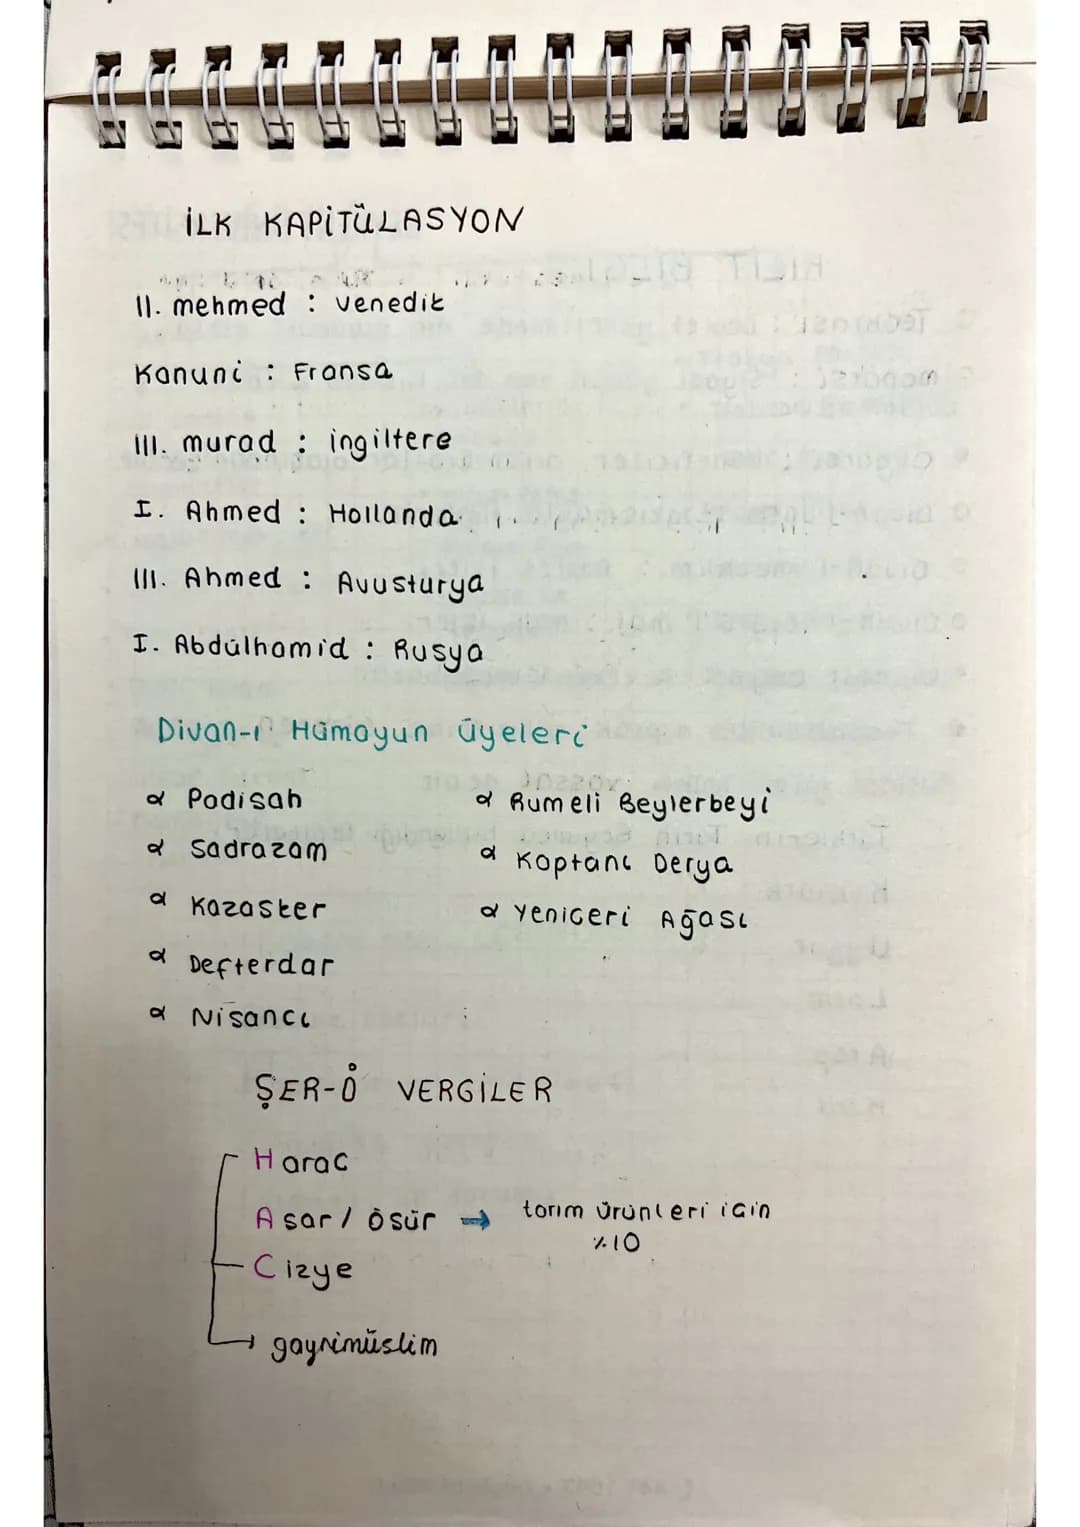 İLK KAPİTÜLASYON
II. mehmed : venedik
Kanuni : Fransa
III. murad : ingiltere
I. Ahmed : Hollanda
III. Ahmed : Avusturya
I. Abdülhamid : Rusya
Divan-ı Hümayun üyeleri
α Padisah
α Sadrazam
α Kazasker
α Defterdar
α Nisancı
α Rumeli Beylerbeyi
α Kaptanı Derya
α Yeniceri Ağası
ŞER-Ö VERGİLER
Harac
Asar / ösür → tarım ürünleri icin
%10
Cizye
→ gayrimüslim